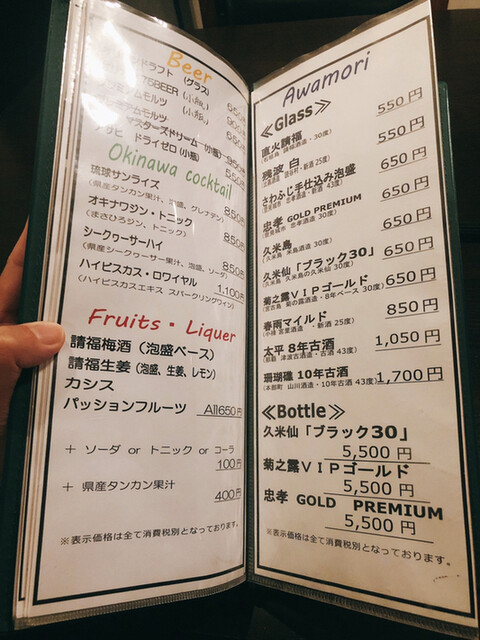 Beer
ドラフト (グラス)
75BEER (小瓶)
モルツ (小瓶)
900
マスターズドリーム (小瓶)
ドライゼロ (小瓶)
Okinawa cocktail
琉球サンライズ
(県産タンカン果汁、泡盛、グレナデン)
850円
オキナワジン・トニック
(まさひろジン、トニック)
850円
シークヮーサーハイ
(県産シークヮーサー果汁、泡盛、ソーダ)
850円
ハイビスカス・ロワイヤル
(ハイビスカスエキス スパークリングワイン)
1,100円
Fruits・Liquer
請福梅酒 (泡盛ベース)
請福生姜 (泡盛、生姜、レモン)
カシス
パッションフルーツ All650円
+ ソーダ or トニック or コーラ
100円
+ 県産タンカン果汁
400円
※表示価格は全て消費税別となっております。
Awamori
≪Glass≫
直火請福 550円
残波 白 550円
さわふじ手仕込み泡盛 650円
忠孝 GOLD PREMIUM 650円
久米島 650円
久米仙「ブラック30」 650円
菊之露VIPゴールド 650円
春雨マイルド 850円
太平 8年古酒 1,050円
珊瑚礁 10年古酒 1,700円
≪Bottle≫
久米仙「ブラック30」
5,500円
菊之露VIPゴールド
5,500円
忠孝 GOLD PREMIUM
5,500円
※表示価格は全て消費税別となっております。